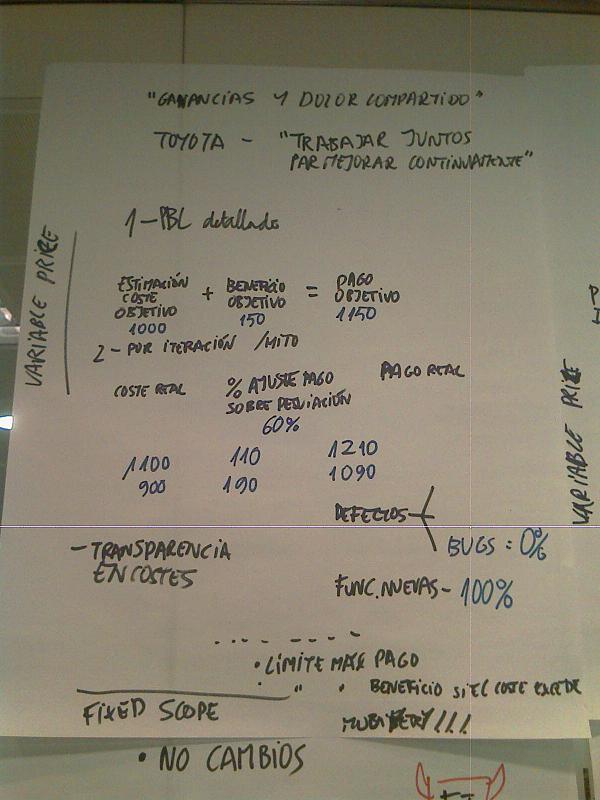 "GANANCIAS Y DOLOR COMPARTIDO"
TOYOTA - "TRABAJAR JUNTOS
PAR MEJORAR CONTINUAMENTE"
VARIABLE PRICE
1-PBL detallado
ESTIMACIÓN COSTE OBJETIVO + BENEFICIO OBJETIVO = PAGO OBJETIVO
1000 150 1150
2-POR ITERACIÓN /HITO
COSTE REAL % AJUSTE PAGO SOBRE DESVIACIÓN PAGO REAL
60%
1100 110 1210
900 190 1090
DEFECTOS
BUGS = 0%
- TRANSPARENCIA
EN COSTES
FUNC. NUEVAS - 100%
• LÍMITE MAX PAGO
" • BENEFICIO SI EL COSTE EXCEDE
FIXED SCOPE
• NO CAMBIOS
VARIABLE PRICE